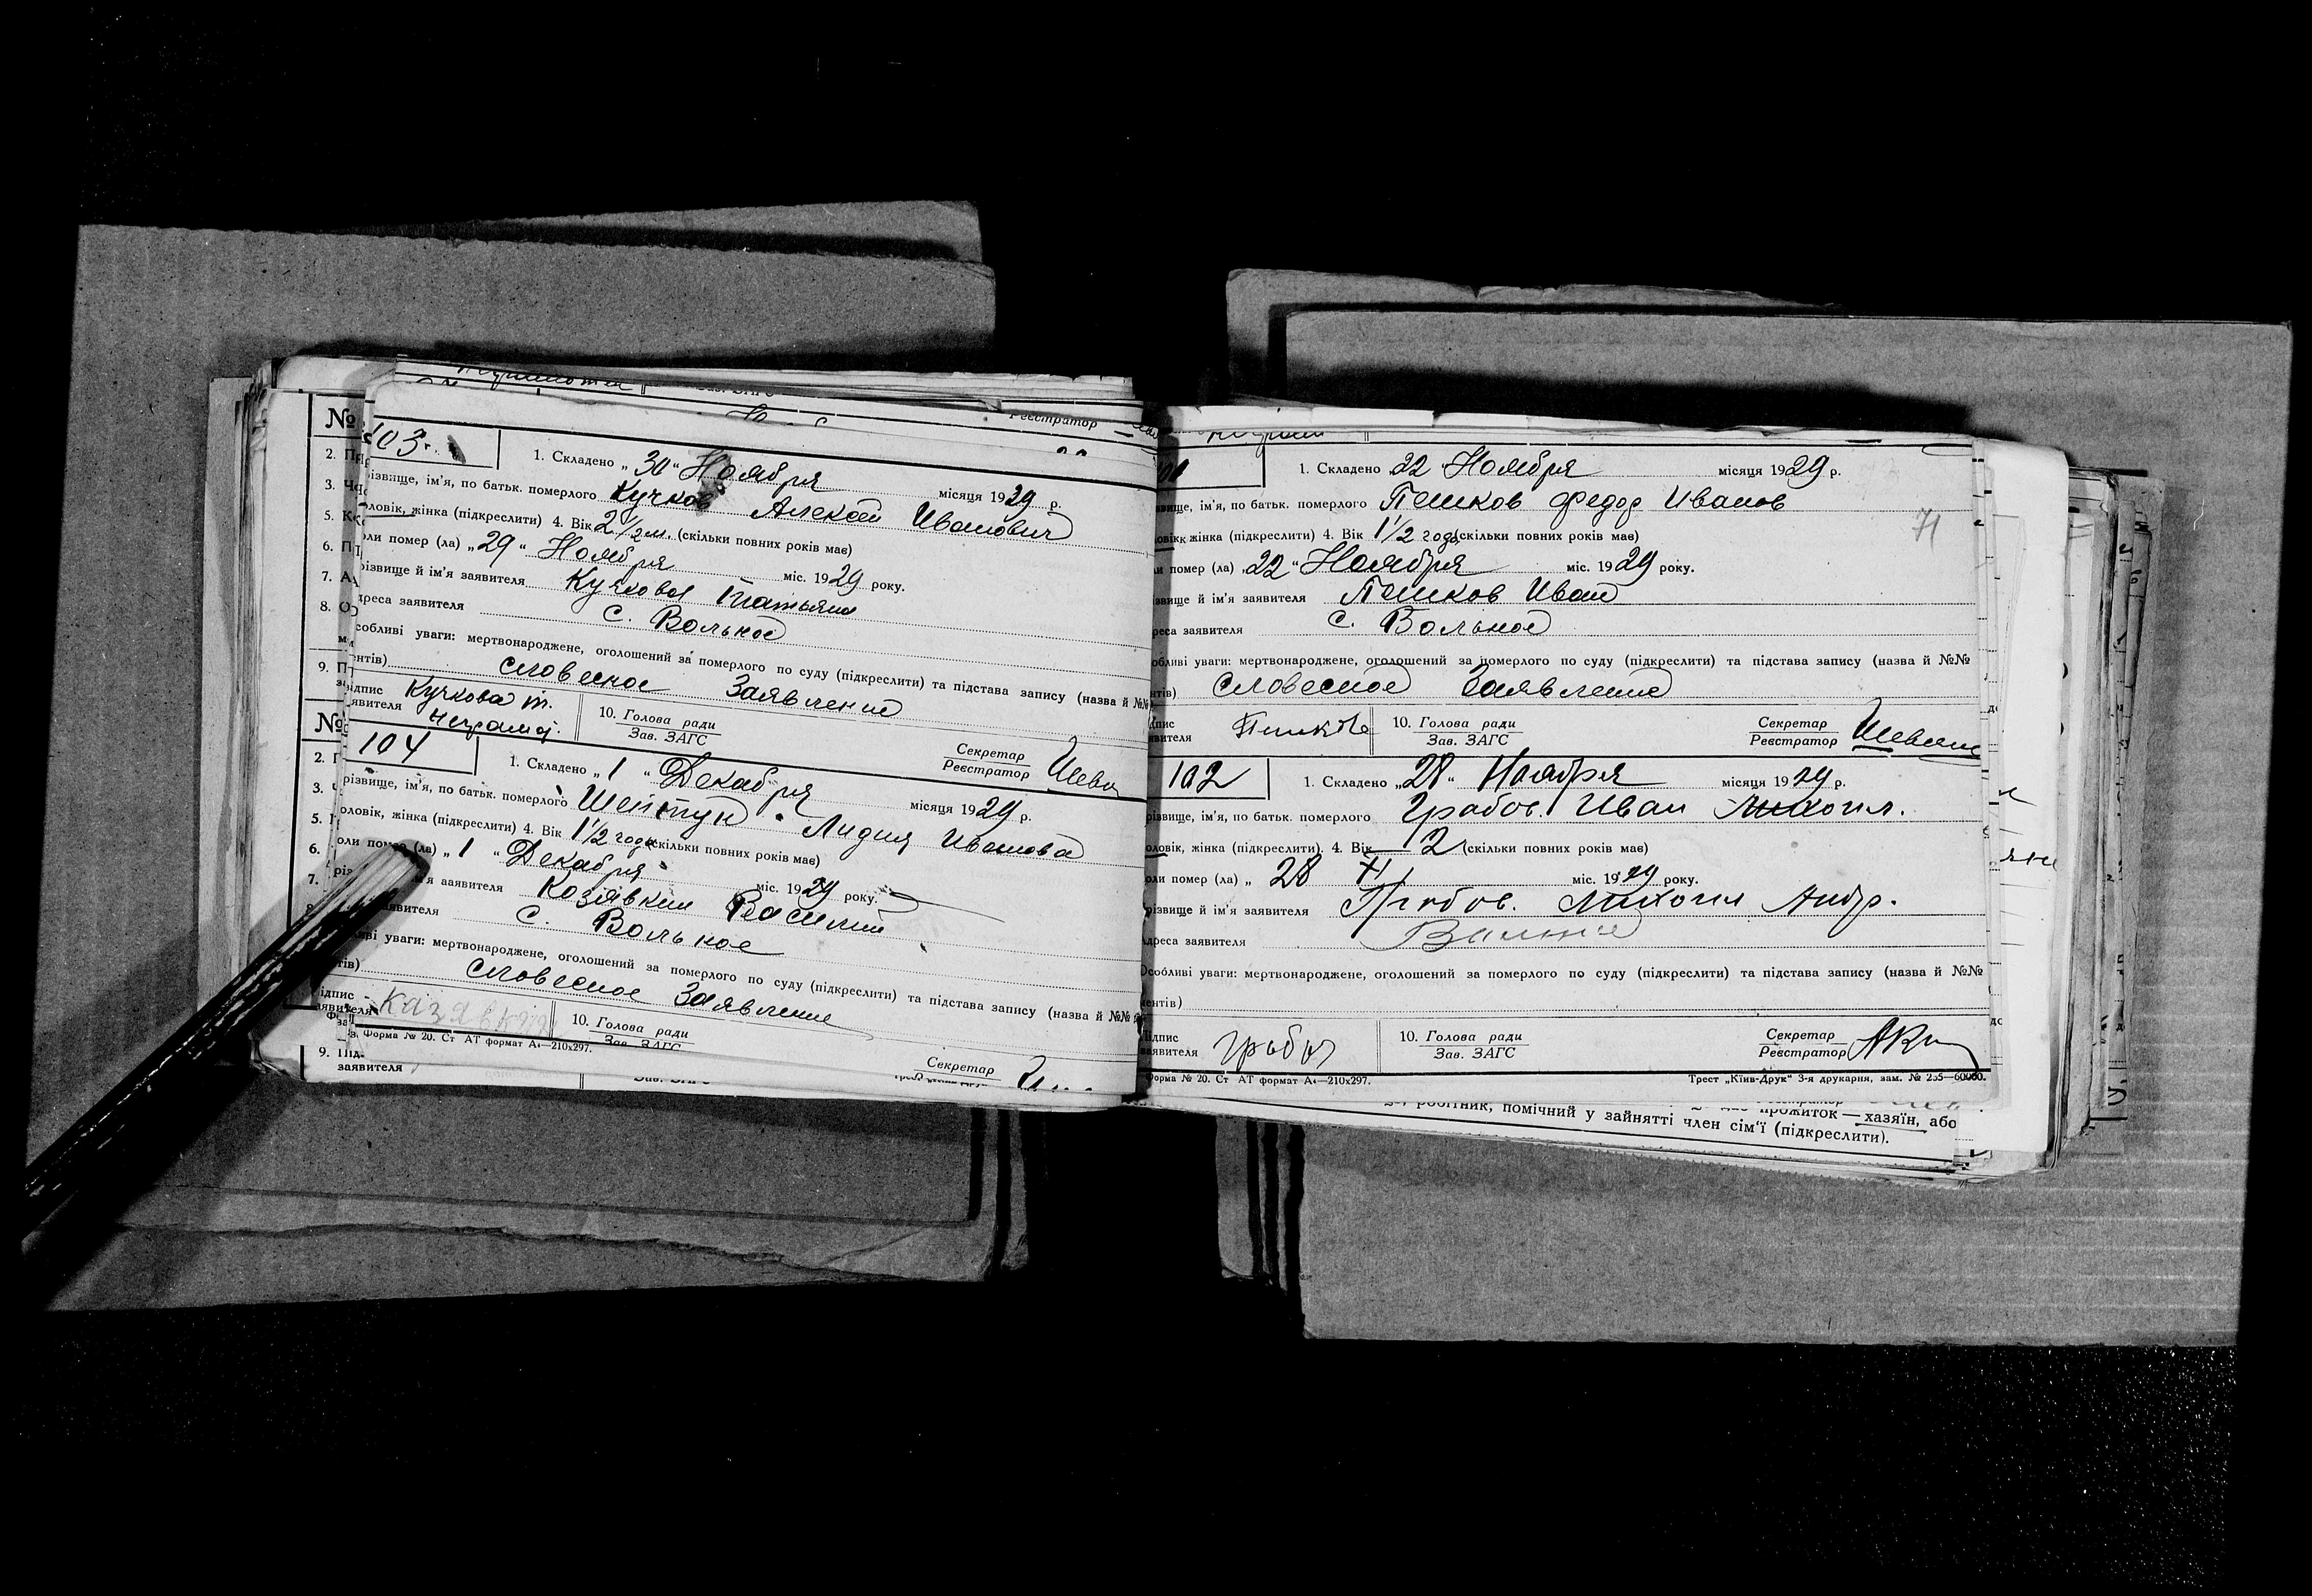 Реєстратор
№
103.
1. Складено „30“ Ноября місяця 1929 р.
різвище, ім'я, по батьк. померлого Кучков Алексей Иванович
оловік, жінка (підкреслити) 4. Вік 2 1/2 м. (скільки повних років має)
оли помер (ла) „29“ Ноября міс. 1929 року.
різвище й ім'я заявителя Кучкова Татьяна
дреса заявителя с. Вольное
собливі уваги: мертвонароджене, оголошений за померлого по суду (підкреслити) та підстава запису (назва й №№
ентів) словесное Заявление
ідпис Кучкова т.
явителя неграмо.
10. Голова ради
Зав. ЗАГС
Секретар
Реєстратор
№
104
1. Складено „1“ Декабря місяця 1929 р.
різвище, ім'я, по батьк. померлого Шейтун Лидия Иванова
оловік, жінка (підкреслити) 4. Вік 1 1/2 года (скільки повних років має)
оли помер (ла) „1“ Декабря міс. 1929 року.
я заявителя Козявкин Василий
явителя с. Вольное
ві уваги: мертвонароджене, оголошений за померлого по суду (підкреслити) та підстава запису (назва й №№
тів) словесное Заявление
ідпис Казявкин
явителя
10. Голова ради
Зав. ЗАГС
Форма № 20. Ст АТ формат А4—210х297.
Секретар
9. Під.
заявителя
1. Складено 22 Ноября місяця 1929 р.
вище, ім'я, по батьк. померлого Пешков Федор Иванов
71
овік, жінка (підкреслити) 4. Вік 1 1/2 года (скільки повних років має)
и помер (ла) „22“ Ноября міс. 1929 року.
звище й ім'я заявителя Пешков Иван
реса заявителя с. Вольное
обливі уваги: мертвонароджене, оголошений за померлого по суду (підкреслити) та підстава запису (назва й №№
нтів) словесное Заявление
пис
явителя
10. Голова ради
Зав. ЗАГС
Секретар
Реєстратор
102
1. Складено „28“ Ноября місяця 1929 р.
різвище, ім'я, по батьк. померлого Грабов Иван Михоил.
оловік, жінка (підкреслити). 4. Вік 2 (скільки повних років має)
оли помер (ла) „ 28 XI міс. 1929 року.
різвище й ім'я заявителя Грабов. Михоил Андр.
дреса заявителя
Особливі уваги: мертвонароджене, оголошений за померлого по суду (підкреслити) та підстава запису (назва й №№
ентів)
ідпис
аявителя
10. Голова ради
Зав. ЗАГС
Секретар
Реєстратор
Форма № 20. Ст АТ формат А4—210х297.
Трест „Київ-Друк“ 3-я друкарня, зам. № 235—60000.
робітник, помічний у зайнятті член сім'ї (підкреслити).
прожиток — хазяїн, або